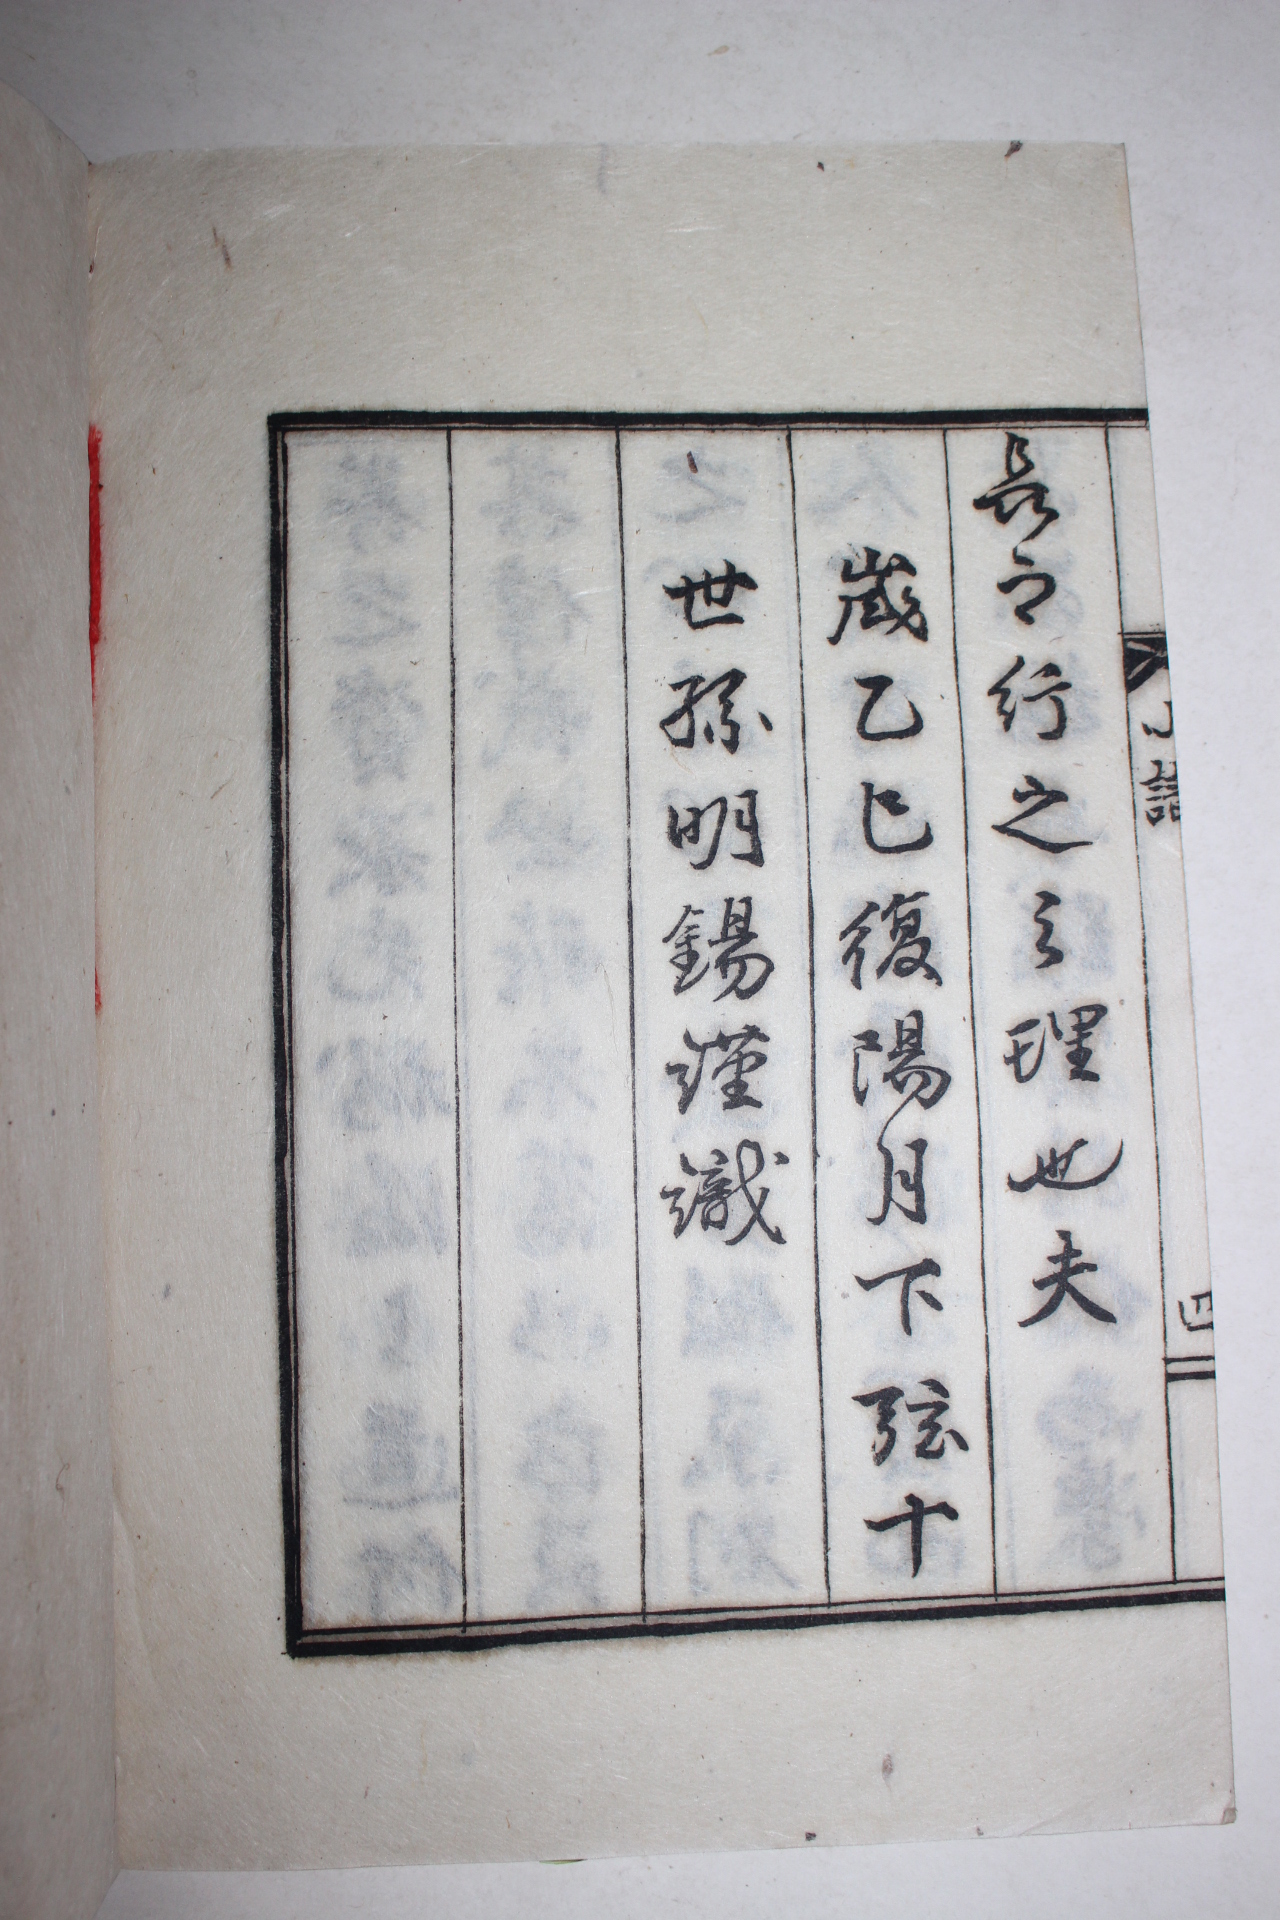 小誌
四
長以行之之理也夫
歲乙巳復陽月下弦十
世孫明錫謹識